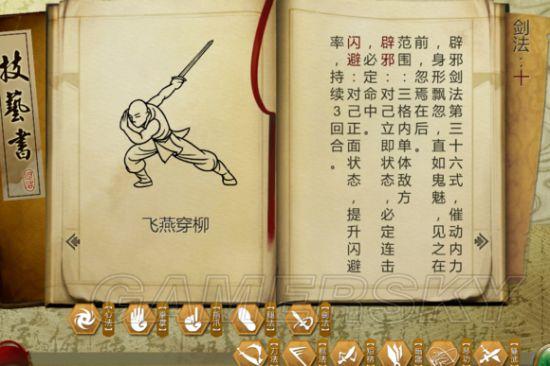 剑法：十
辟邪剑法第三十六式，催动内力
，身形飘忽，直如鬼魅，见之在
前，忽焉在后。
范围：三格内单体敌方
辟邪：对己立即状态，必定连击
，必定命中。
闪避：对己正面状态，提升闪避
率，持续3回合。
飞燕穿柳
技藝書
GAMERSKY
心法
拳掌
指爪
腿法
剑法
刀法
棍法
短柄